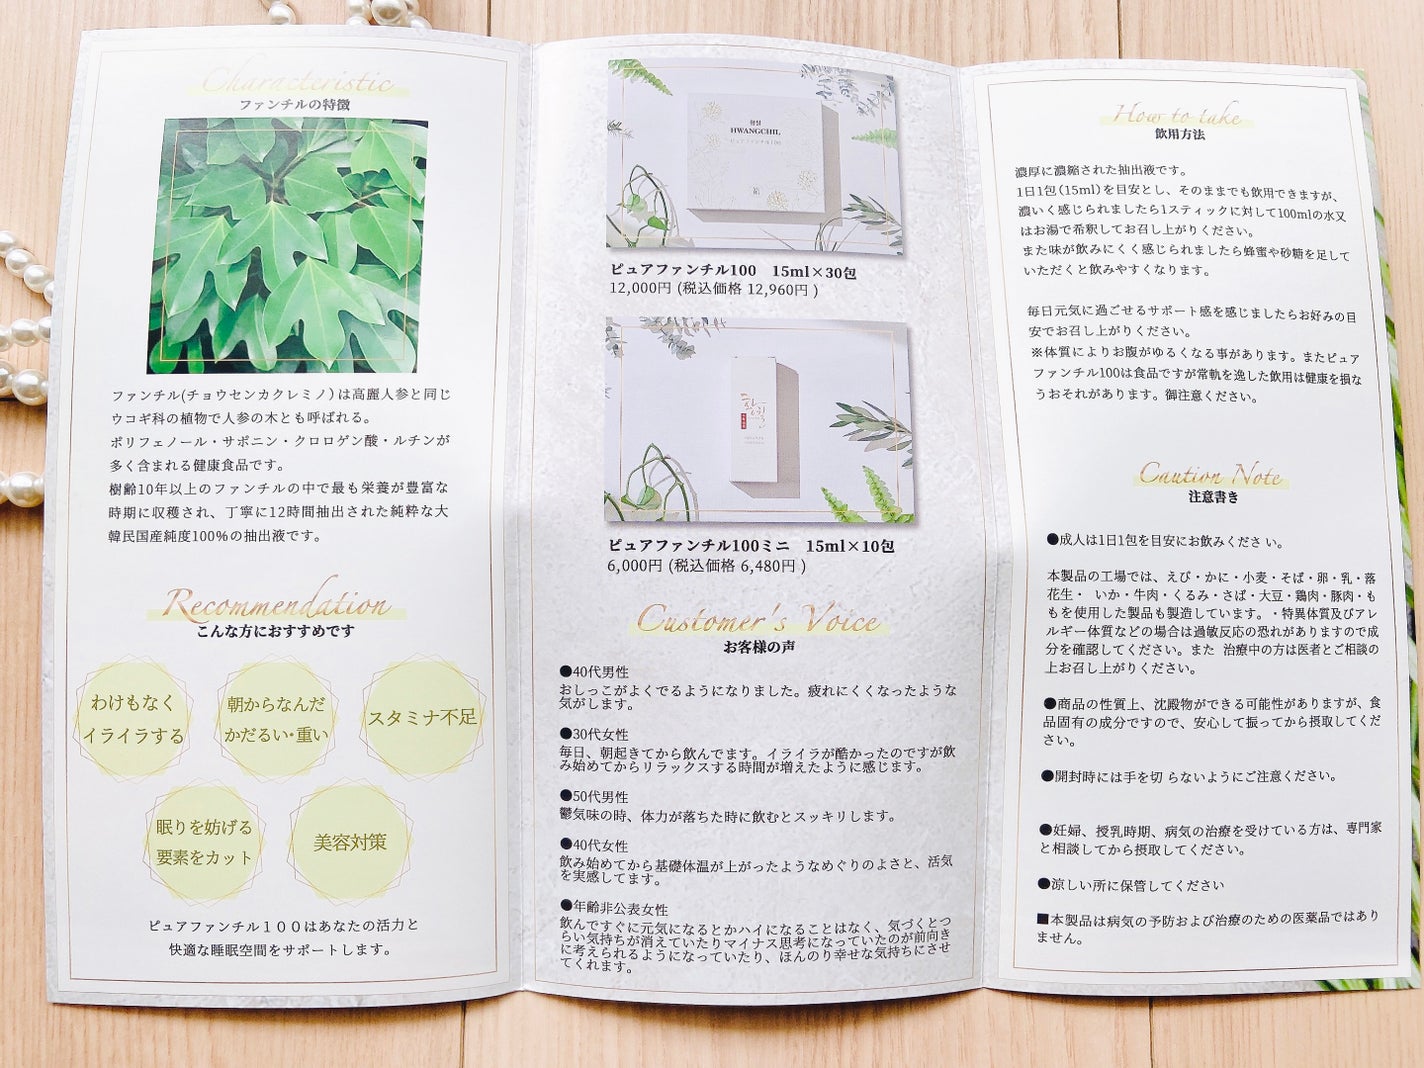 Characteristic
ファンチルの特徴
ファンチル(チョウセンカクレミノ)は高麗人参と同じ
ウコギ科の植物で人参の木とも呼ばれる。
ポリフェノール・サポニン・クロロゲン酸・ルチンが
多く含まれる健康食品です。
樹齢10年以上のファンチルの中で最も栄養が豊富な
時期に収穫され、丁寧に12時間抽出された純粋な大
韓民国産純度100%の抽出液です。
Recommendation
こんな方におすすめです
わけもなく
イライラする
朝からなんだ
かだるい・重い
スタミナ不足
眠りを妨げる
要素をカット
美容対策
ピュアファンチル１００はあなたの活力と
快適な睡眠空間をサポートします。
HWANGCHIL
ピュアファンチル100
ピュアファンチル100　15ml×30包
12,000円 (税込価格 12,960円 )
황칠
ピュアファンチル100ミニ　15ml×10包
6,000円 (税込価格 6,480円 )
Customer's Voice
お客様の声
●40代男性
おしっこがよくでるようになりました。疲れにくくなったような
気がします。
●30代女性
毎日、朝起きてから飲んでます。イライラが酷かったのですが飲
み始めてからリラックスする時間が増えたように感じます。
●50代男性
鬱気味の時、体力が落ちた時に飲むとスッキリします。
●40代女性
飲み始めてから基礎体温が上がったようなめぐりのよさと、活気
を実感してます。
●年齢非公表女性
飲んですぐに元気になるとかハイになることはなく、気づくとつ
らい気持ちが消えていたりマイナス思考になっていたのが前向き
に考えられるようになっていたり、ほんのり幸せな気持ちにさせ
てくれます。
How to take
飲用方法
濃厚に濃縮された抽出液です。
1日1包(15ml)を目安とし、そのままでも飲用できますが、
濃いく感じられましたら1スティックに対して100mlの水又
はお湯で希釈してお召し上がりください。
また味が飲みにくく感じられましたら蜂蜜や砂糖を足して
いただくと飲みやすくなります。
毎日元気に過ごせるサポート感を感じましたらお好みの目
安でお召し上がりください。
※体質によりお腹がゆるくなる事があります。またピュア
ファンチル100は食品ですが常軌を逸した飲用は健康を損な
うおそれがあります。御注意ください。
Caution Note
注意書き
●成人は1日1包を目安にお飲みください。
本製品の工場では、えび・かに・小麦・そば・卵・乳・落
花生・ いか・牛肉・くるみ・さば・大豆・鶏肉・豚肉・も
もを使用した製品も製造しています。・特異体質及びアレ
ルギー体質などの場合は過敏反応の恐れがありますので成
分を確認してください。また 治療中の方は医者とご相談の
上お召し上がりください。
●商品の性質上、沈殿物ができる可能性がありますが、食
品固有の成分ですので、安心して振ってから摂取してくだ
さい。
●開封時には手を切 らないようにご注意ください。
●妊婦、授乳時期、病気の治療を受けている方は、専門家
と相談してから摂取してください。
●涼しい所に保管してください
■本製品は病気の予防および治療のための医薬品ではあり
ません。